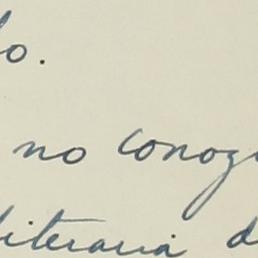 lo.
no conozc
literaria d